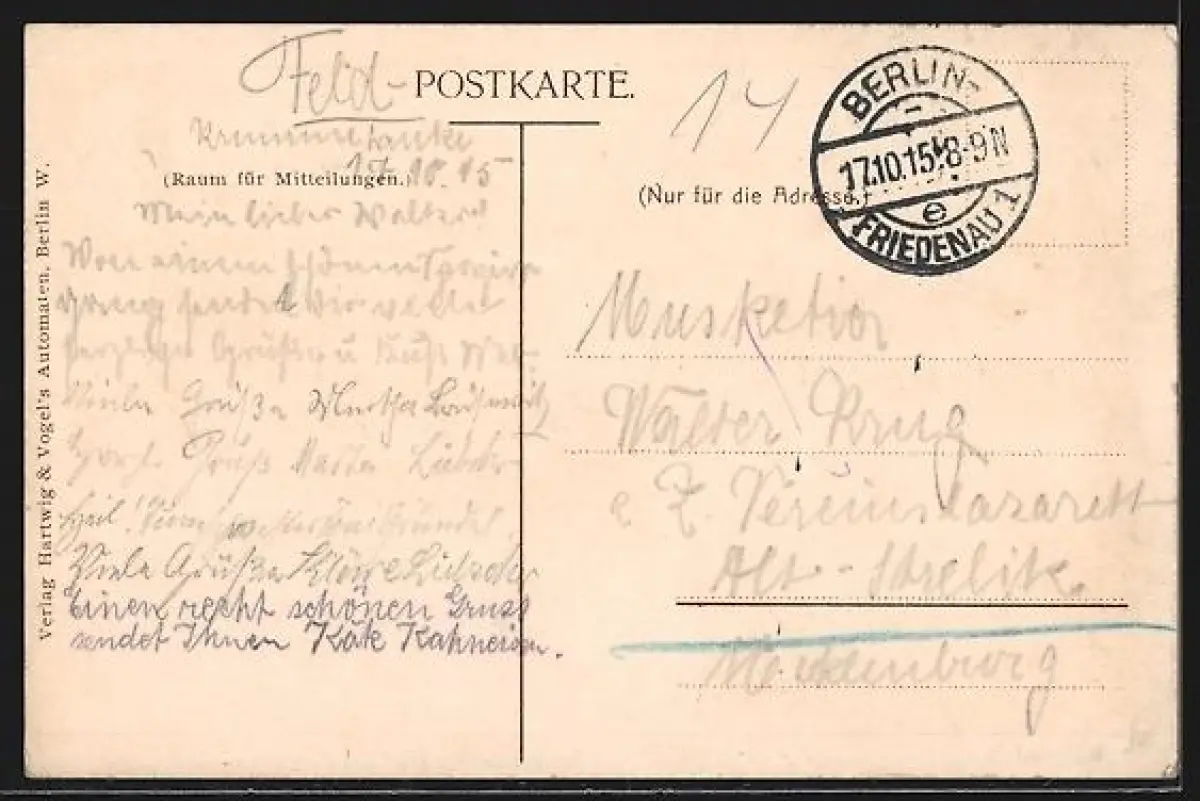 Feld-POSTKARTE.
Krumme Lanke
17.10.15
(Raum für Mitteilungen.)
Mein lieber Walter!
Von einem schönen Spazier
gang sendet Dir viele
herzliche Grüße u Kuß
Viele Grüße Martha
Herzl. Gruß
Heil!
Viele Grüße
Einen recht schönen Gruss
sendet Ihnen Käte
Verlag Hartwig & Vogel's Automaten, Berlin W.
14
BERLIN-
17.10.15.8-9N
e
FRIEDENAU 1
(Nur für die Adresse.)
Musketier
Walter Krug
z. Z. Vereinslazarett
Alt-Strelitz
Mecklenburg